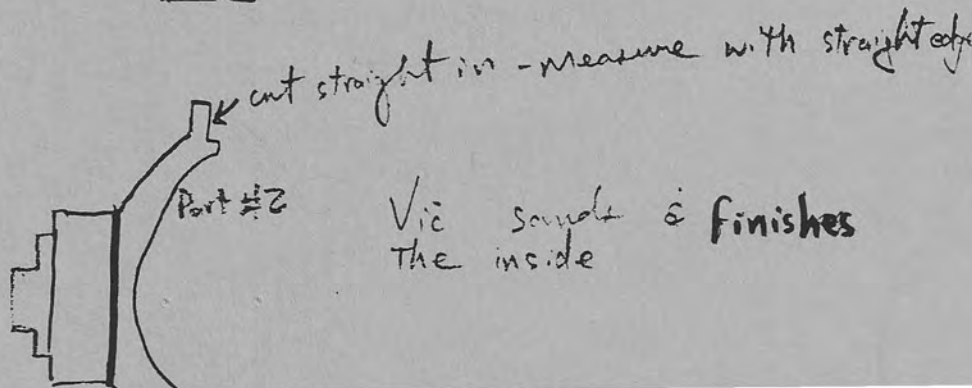 cut straight in - measure with straight edge
Part #2
Vic sands & finishes
the inside